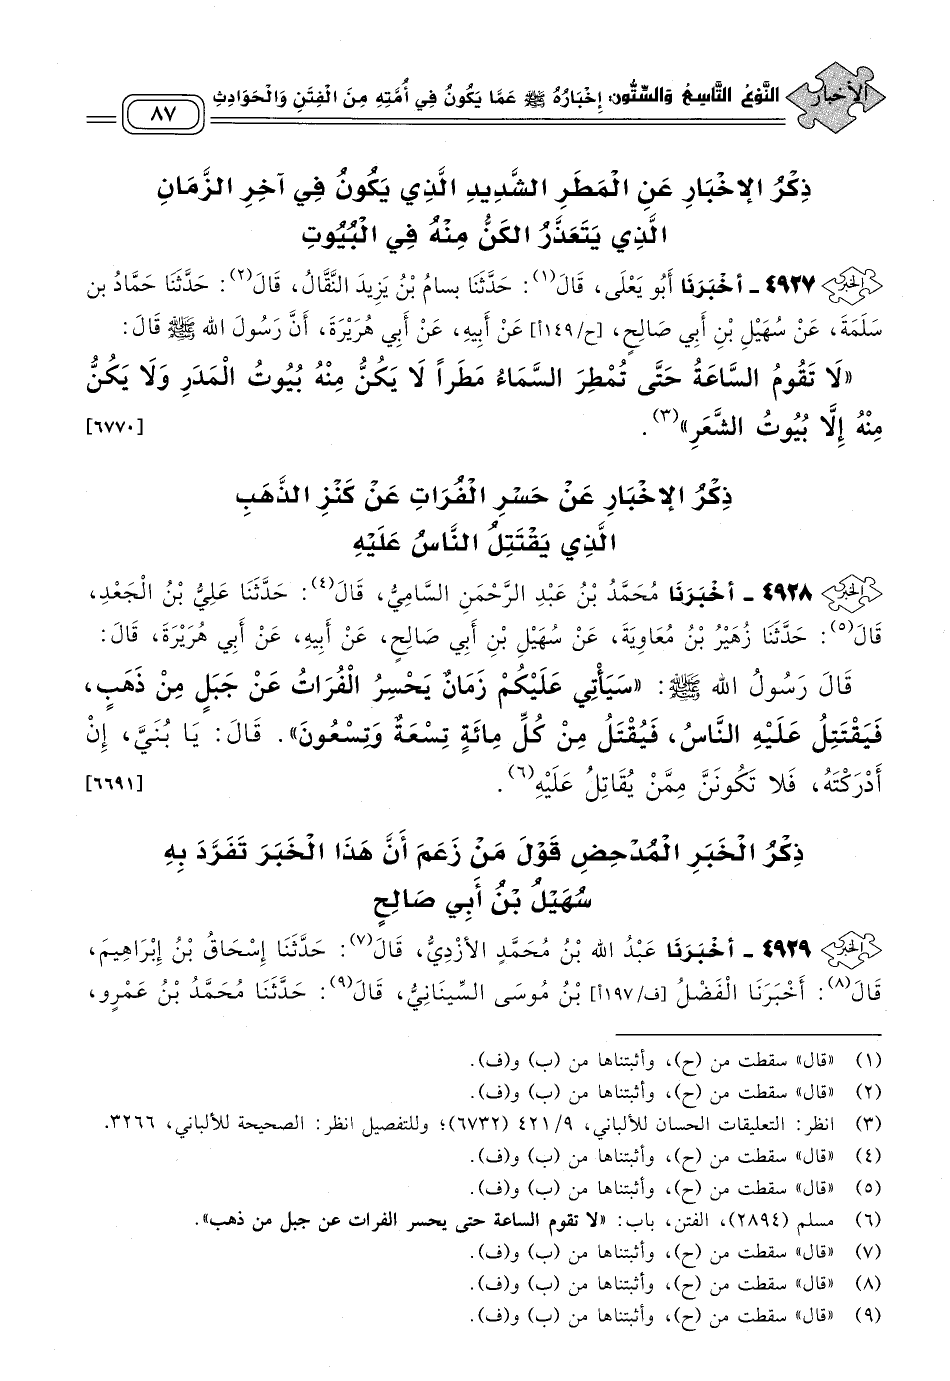 الأخبار
النَّوْعُ التَّاسِعُ وَالسِّتُّون: إخْبَارُهُ ﷺ عَمَّا يَكُونُ فِي أُمَّتِهِ مِنَ الْفِتَنِ وَالْحَوَادِثِ
٨٧
ذِكْرُ الإخْبَارِ عَنِ الْمَطَرِ الشَّدِيدِ الَّذِي يَكُونُ فِي آخِرِ الزَّمَانِ
الَّذِي يَتَعَذَّرُ الكَنُّ مِنْهُ فِي الْبُيُوتِ
٤٩٢٧ - أخْبَرَنَا أَبُو يَعْلَى، قَالَ(١): حَدَّثَنَا بسامُ بْنُ يَزِيدَ النَّقَّالُ، قَالَ(٢): حَدَّثَنَا حَمَّادُ بن
سَلَمَةَ، عَنْ سُهَيْلِ بْنِ أَبِي صَالِحٍ، [ح/١٤٩أ] عَنْ أَبِيهِ، عَنْ أَبِي هُرَيْرَةَ، أَنَّ رَسُولَ الله ﷺ قَالَ:
«لَا تَقُومُ السَّاعَةُ حَتَّى تُمْطِرَ السَّمَاءُ مَطَراً لَا يَكُنُّ مِنْهُ بُيُوتُ الْمَدَرِ وَلَا يَكُنُّ
مِنْهُ إِلَّا بُيُوتُ الشَّعَرِ»(٣). [٦٧٧٠]
ذِكْرُ الإخْبَارِ عَنْ حَسْرِ الْفُرَاتِ عَنْ كَنْزِ الذَّهَبِ
الَّذِي يَقْتَتِلُ النَّاسُ عَلَيْهِ
٤٩٢٨ - أخْبَرَنَا مُحَمَّدُ بْنُ عَبْدِ الرَّحْمَنِ السَّامِيُّ، قَالَ(٤): حَدَّثَنَا عَلِيُّ بْنُ الْجَعْدِ،
قَالَ(٥): حَدَّثَنَا زُهَيْرُ بْنُ مُعَاوِيَةَ، عَنْ سُهَيْلِ بْنِ أَبِي صَالِحٍ، عَنْ أَبِيهِ، عَنْ أَبِي هُرَيْرَةَ، قَالَ:
قَالَ رَسُولُ الله ﷺ: «سَيَأْتِي عَلَيْكُمْ زَمَانٌ يَحْسِرُ الْفُرَاتُ عَنْ جَبَلٍ مِنْ ذَهَبٍ،
فَيَقْتَتِلُ عَلَيْهِ النَّاسُ، فَيُقْتَلُ مِنْ كُلِّ مِائَةٍ تِسْعَةٌ وَتِسْعُونَ». قَالَ: يَا بُنَيَّ، إِنْ
أَدْرَكْتَهُ، فَلا تَكُونَنَّ مِمَّنْ يُقَاتِلُ عَلَيْهِ(٦). [٦٦٩١]
ذِكْرُ الْخَبَرِ الْمُدْحِضِ قَوْلَ مَنْ زَعَمَ أَنَّ هَذَا الْخَبَرَ تَفَرَّدَ بِهِ
سُهَيْلُ بْنُ أَبِي صَالِحٍ
٤٩٢٩ - أخْبَرَنَا عَبْدُ الله بْنُ مُحَمَّدٍ الأَزْدِيُّ، قَالَ(٧): حَدَّثَنَا إِسْحَاقُ بْنُ إِبْرَاهِيمَ،
قَالَ(٨): أَخْبَرَنَا الْفَضْلُ [ف/١٩٧أ] بْنُ مُوسَى السِّينَانِيُّ، قَالَ(٩): حَدَّثَنَا مُحَمَّدُ بْنُ عَمْرٍو،
(١) «قال» سقطت من (ح)، وأثبتناها من (ب) و(ف).
(٢) «قال» سقطت من (ح)، وأثبتناها من (ب) و(ف).
(٣) انظر: التعليقات الحسان للألباني، ٤٢١/٩ (٦٧٣٢)؛ وللتفصيل انظر: الصحيحة للألباني، ٣٢٦٦.
(٤) «قال» سقطت من (ح)، وأثبتناها من (ب) و(ف).
(٥) «قال» سقطت من (ح)، وأثبتناها من (ب) و(ف).
(٦) مسلم (٢٨٩٤)، الفتن، باب: «لا تقوم الساعة حتى يحسر الفرات عن جبل من ذهب».
(٧) «قال» سقطت من (ح)، وأثبتناها من (ب) و(ف).
(٨) «قال» سقطت من (ح)، وأثبتناها من (ب) و(ف).
(٩) «قال» سقطت من (ح)، وأثبتناها من (ب) و(ف).